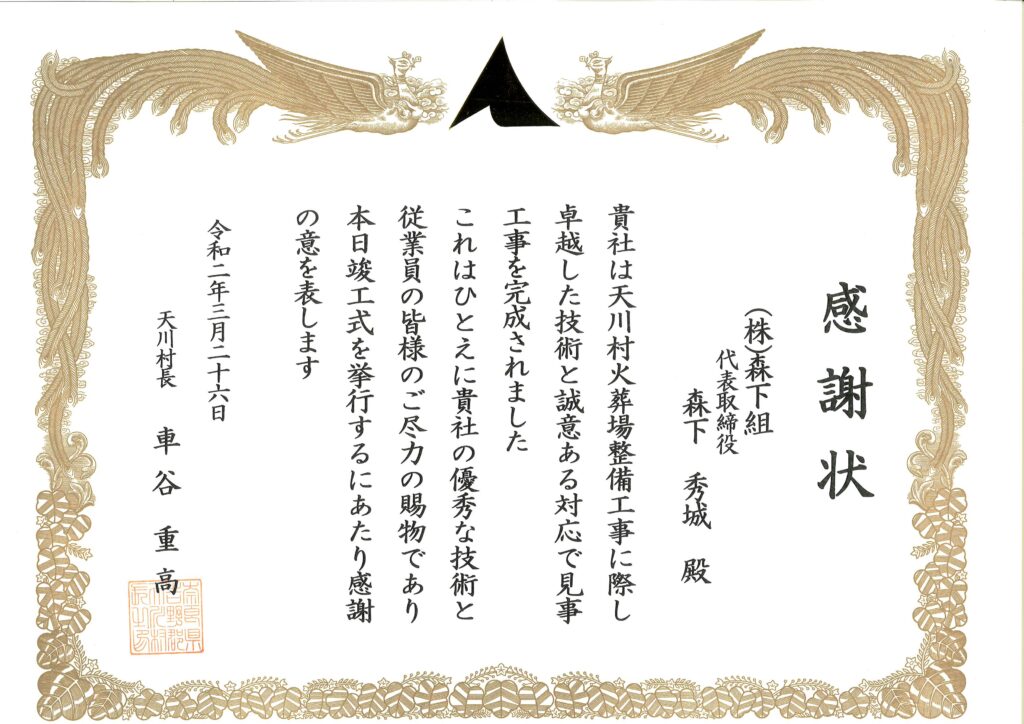 感謝状
(株)森下組
代表取締役
森下 秀城 殿
貴社は天川村火葬場整備工事に際し
卓越した技術と誠意ある対応で見事
工事を完成されました
これはひとえに貴社の優秀な技術と
従業員の皆様のご尽力の賜物であり
本日竣工式を挙行するにあたり感謝
の意を表します
令和二年三月二十六日
天川村長 車谷重高